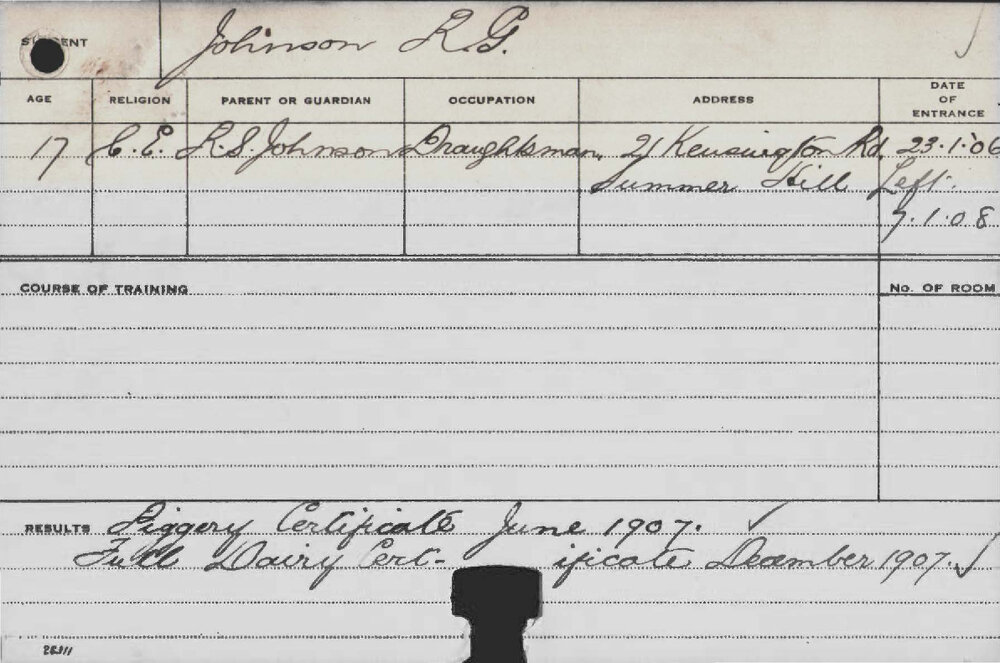 STUDENT Johnson R G.
AGE RELIGION PARENT OR GUARDIAN OCCUPATION ADDRESS DATE OF ENTRANCE
17 C.E. R.S. Johnson Draughtsman, 21 Kensington Rd, 23.1.06
Summer Hill Left.
7.1.08
COURSE OF TRAINING No. OF ROOM
RESULTS Piggery Certificate June 1907.
Full Dairy Cert- ificate December 1907.